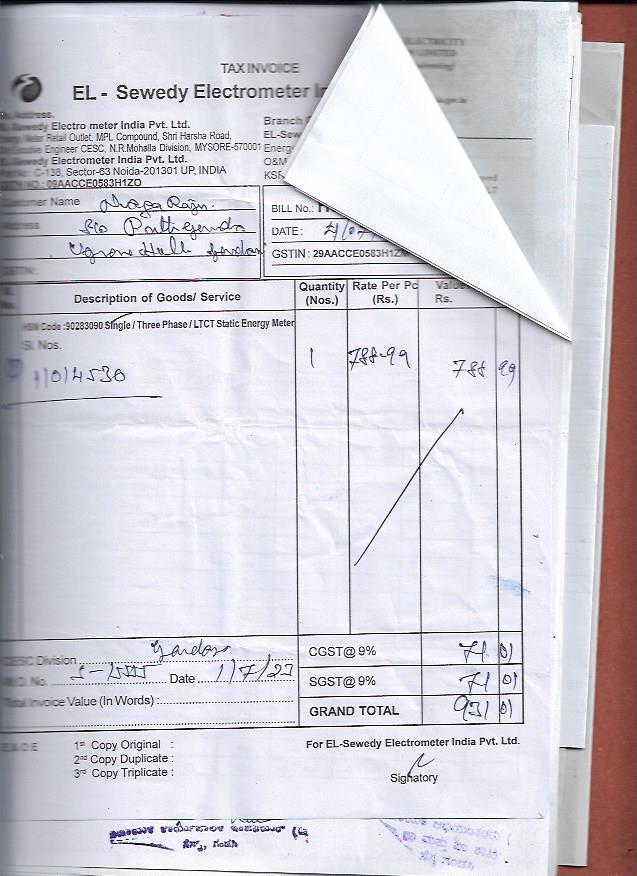 TAX INVOICE
EL - Sewedy Electrometer
Electro meter India Pvt. Ltd.
Retail Outlet, MPL Compound, Shri Harsha Road,
Engineer CESC, N.R.Mohalla Division, MYSORE-570001
Electrometer India Pvt. Ltd.
C-138, Sector-63 Noida-201301 UP, INDIA
09AACCE0583H1ZO
Branch
EL-Sew
O&M
Customer Name Naga Raju.
S/o
BILL No.:
DATE :
GSTIN : 29AACCE0583H1Z
Description of Goods/ Service
Quantity (Nos.)
Rate Per Pc (Rs.)
Value Rs.
HSN Code :90283090 Single / Three Phase / LTCT Static Energy Meter
Sl. Nos.
11014530
1 788-99 788 99
CESC Division
Date 1/7/23
Total Invoice Value (In Words) :
CGST@ 9% 71 01
SGST@ 9% 71 01
GRAND TOTAL 931 01
E & O E
1st Copy Original :
2nd Copy Duplicate :
3rd Copy Triplicate :
For EL-Sewedy Electrometer India Pvt. Ltd.
Signatory